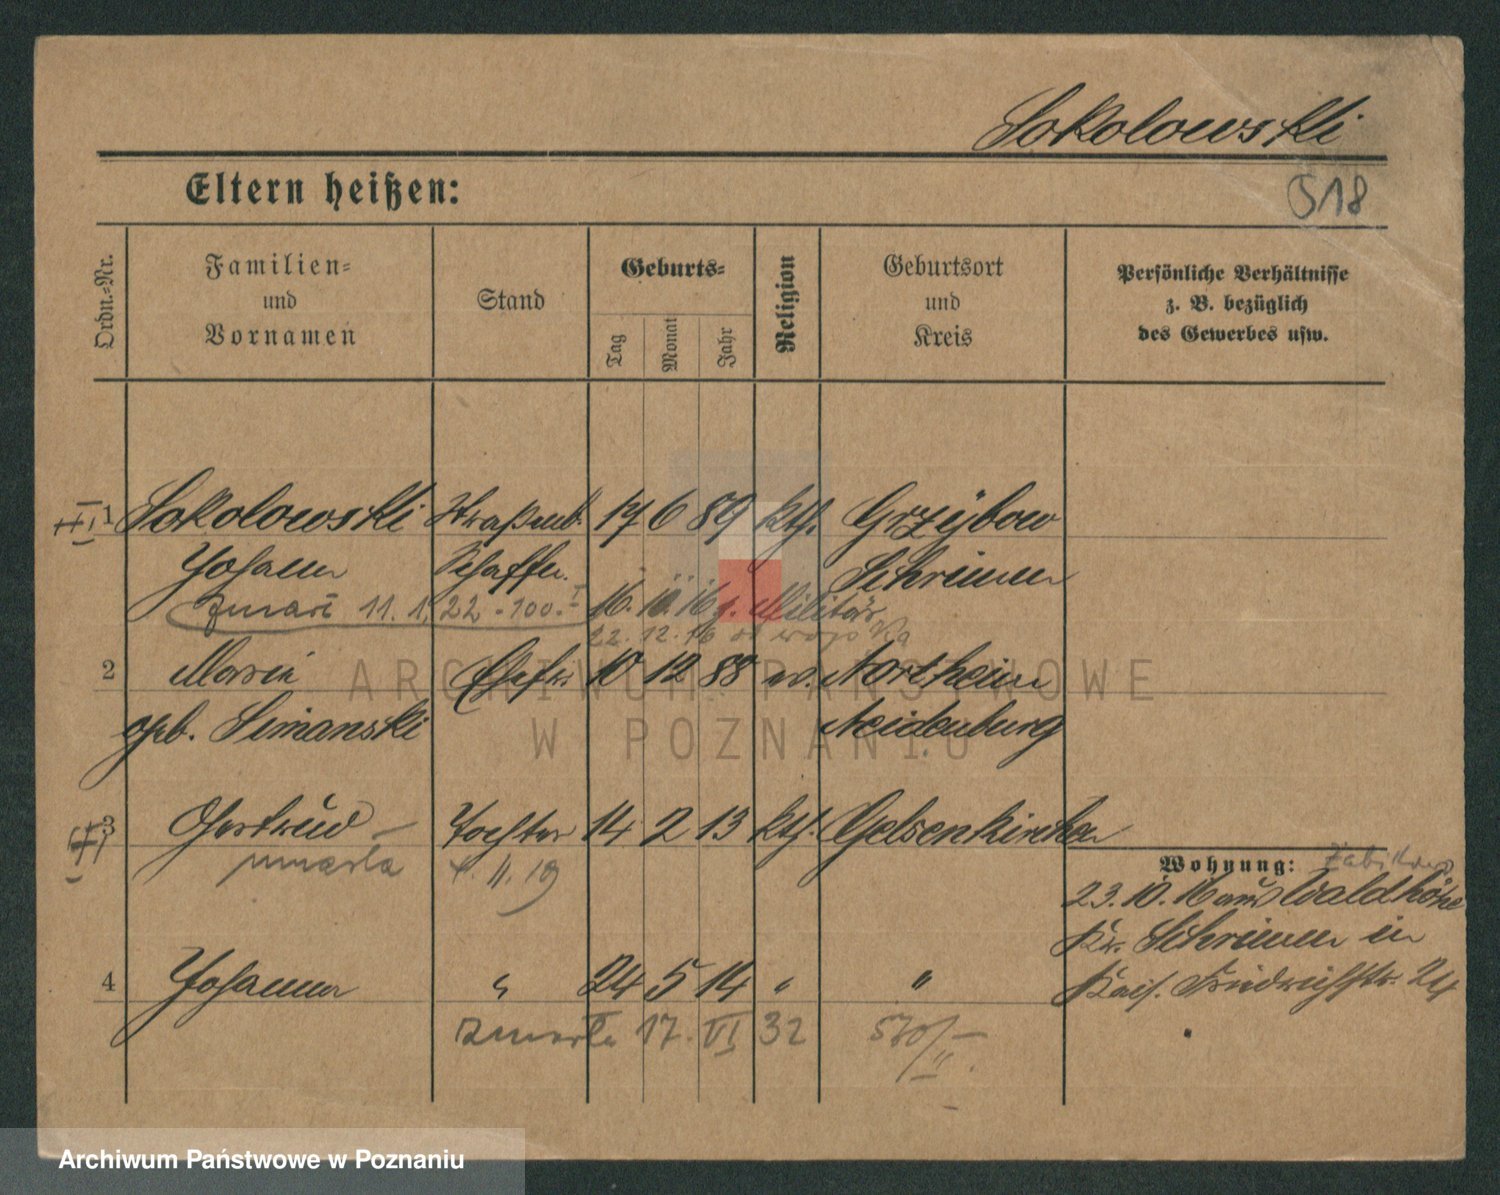 Sokolowski
Eltern heißen:
518
Ordn.-Nr.
Familien-
und
Vornamen
Stand
Geburts-
Tag
Monat
Jahr
Religion
Geburtsort
und
Kreis
Persönliche Verhältnisse
z. B. bezüglich
des Gewerbes usw.
1 Sokolowski Straßenb. 17 6 89 kth. Grzybow
Johann Schaffn. Schrimm
zmarł 11. 1. 22 - 100.- 16. 10. 16 z. Militär
22. 12. 16 od wojska
2 Marie Ehefr. 10 12 88 ev. Northeim
geb. Simanski Neidenburg
3 Gertrud Tochter 14 2 13 kth. Gelsenkirchen
umarła 4. 11. 19
Wohnung: Żabikowo
23. 10. 16 aus Waldhöhe
Kr. Schrimm in
Kais. Friedrichstr. 24
4 Johanna " 24 5 14 " "
zmarła 17. VI 32 570/II
ARCHIWUM PAŃSTWOWE
W POZNANIU
Archiwum Państwowe w Poznaniu